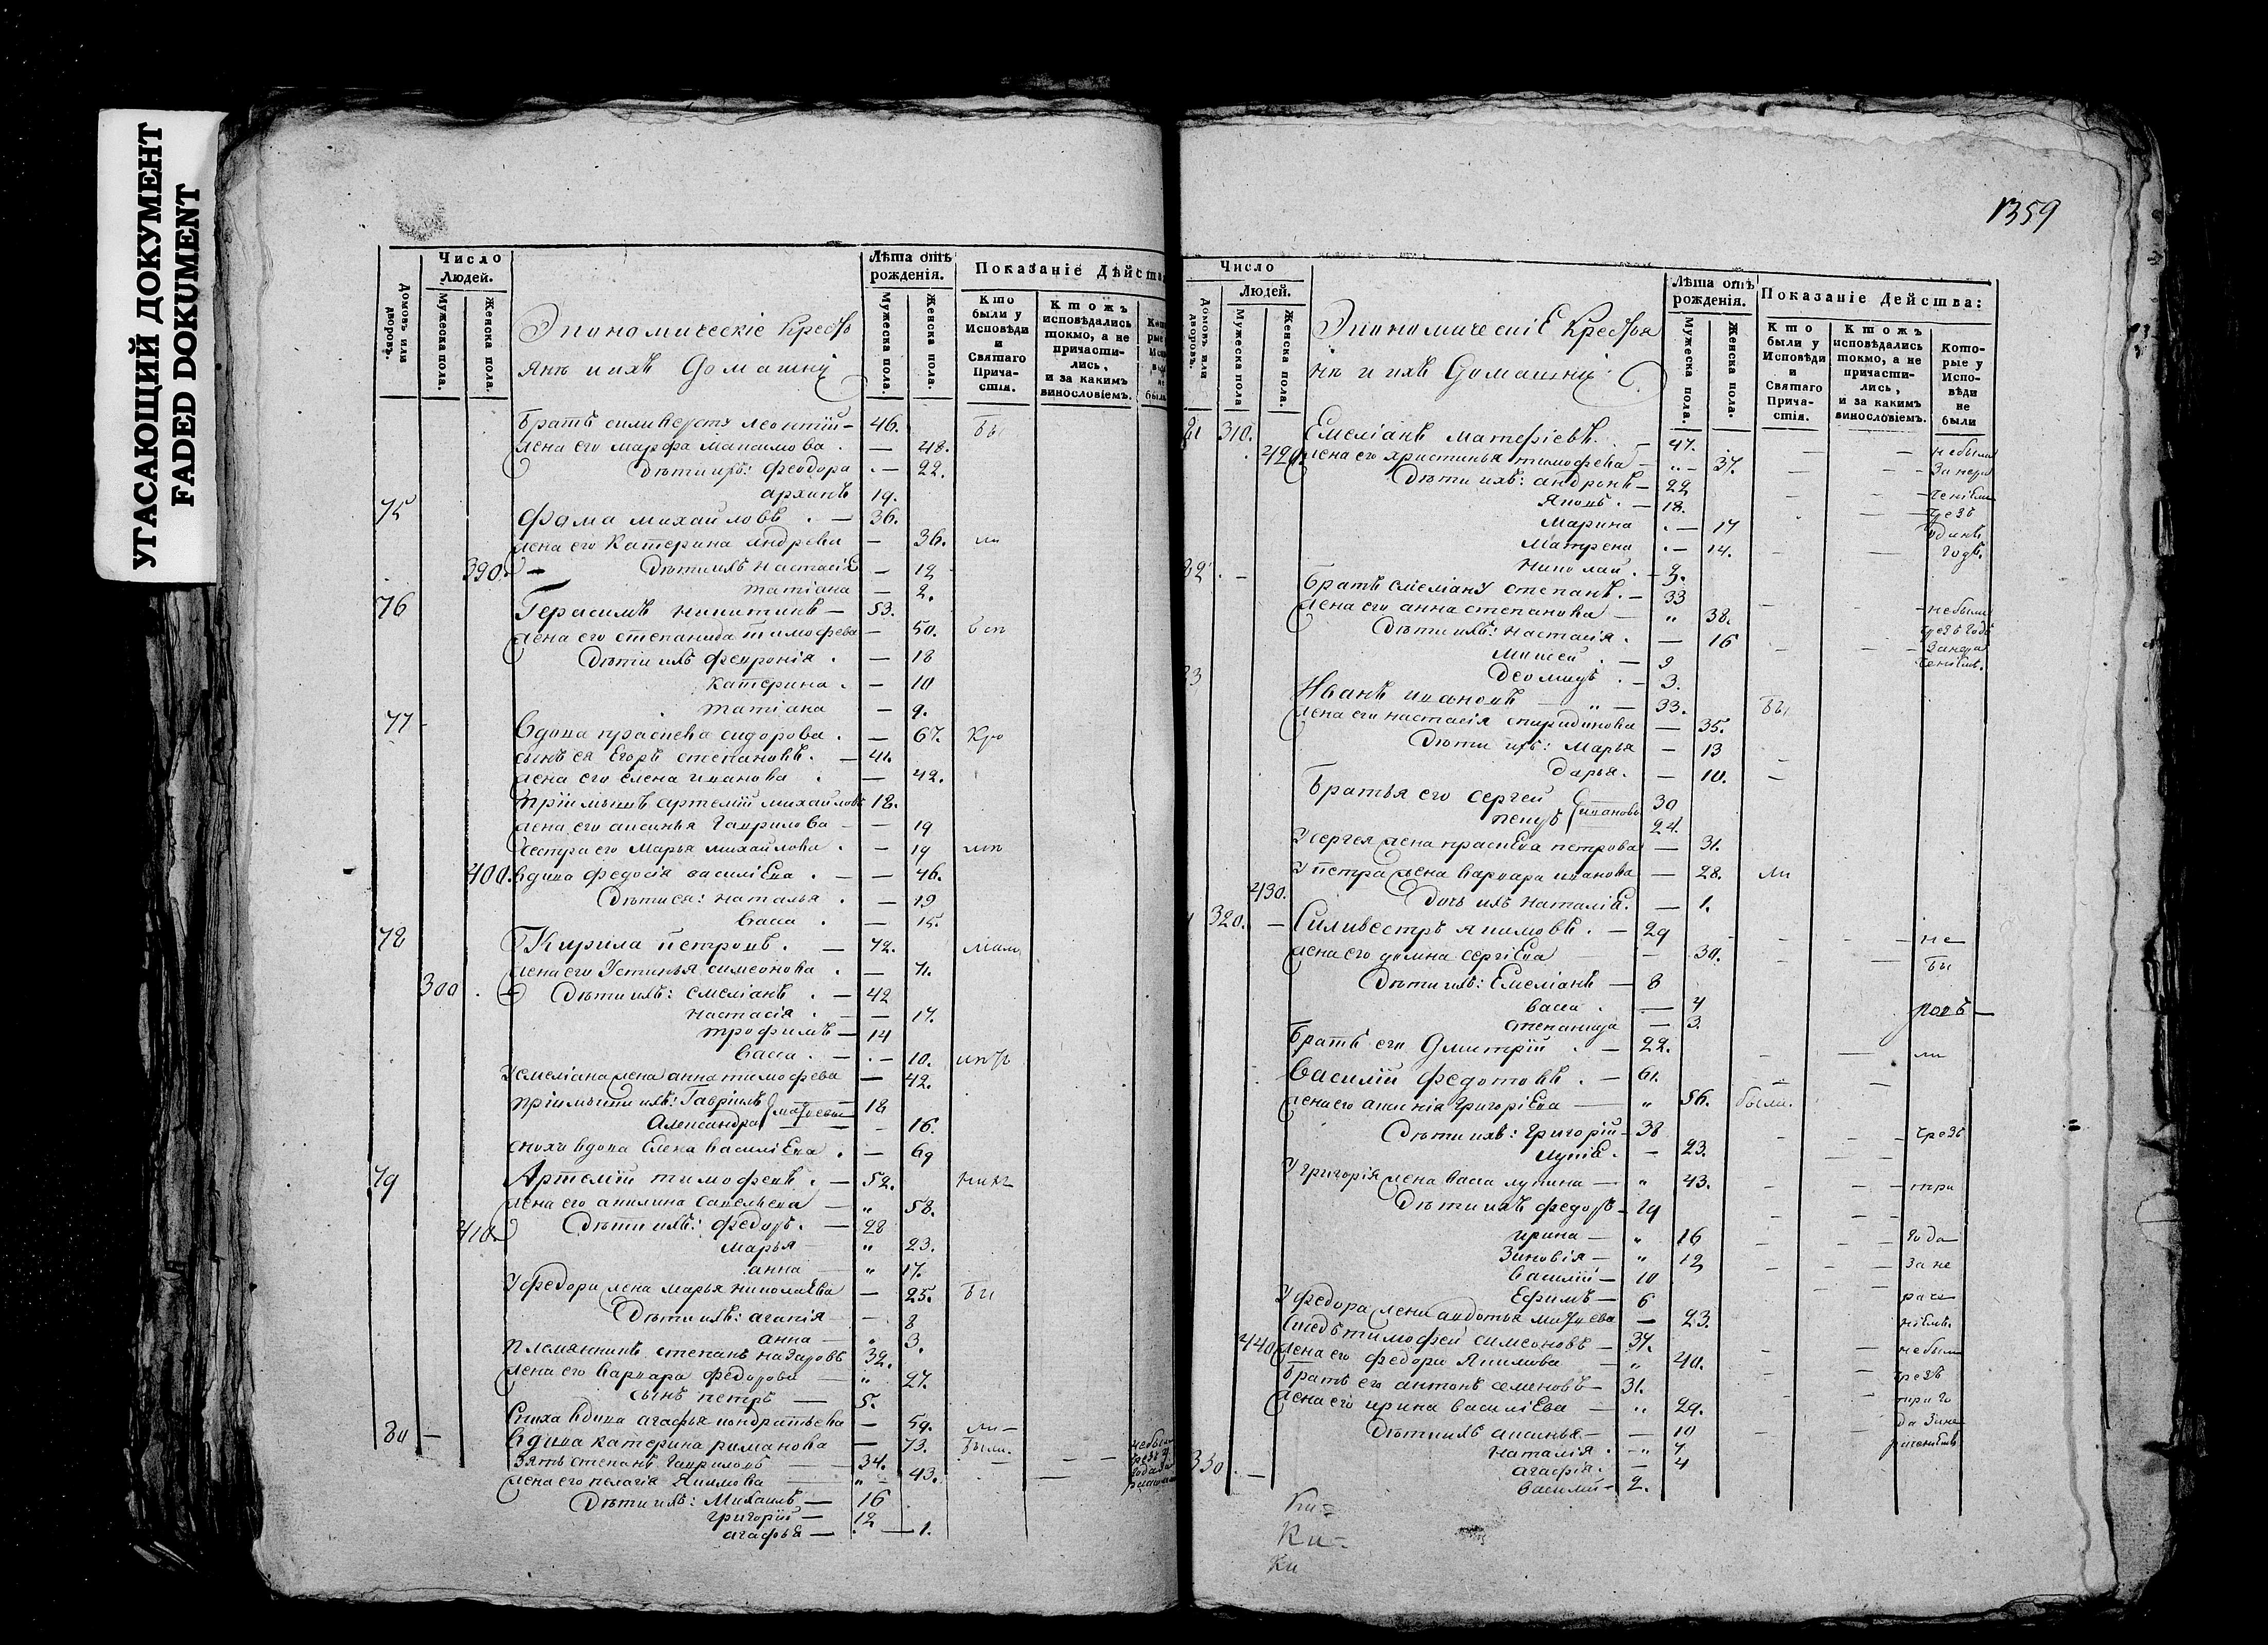 УТАСАЮЩИЙ ДОКУМЕНТ
FADED DOKUMENT
Число Людей.
Домовъ или дворовъ.
Мужеска пола.
Женска пола.
Лѣта отъ рожденія.
Мужеска пола
Женска пола.
Показаніе Дѣйства
Кто были у Исповѣди и Святаго Причастія.
Ктожъ исповѣдались токмо, а не причастились, и за какимъ винословіемъ.
Экономическіе Крестья
янѣ и ихъ домашнии
Братъ силиверсту леонтий 46. Бы
жена его марфа максимова — 48.
Дети ихъ: феодора — 22.
архипъ 19.
75 Фома михайловъ — 36.
жена его Катерина андреева — 36. ли
390. Дѣти ихъ Настасіѣ — 12
татіана — 2.
76 Герасимъ никитинъ — 53.
жена его степанида тимофева — 50.
Дѣти ихъ февронія — 18
катерина — 10
татіана — 9.
77 Вдова прасковa сидорова — 67. Кро
сынъ ея Егоръ степановъ — 41.
жена его елена иванова — 42.
пріимышъ артемій михайловъ 18.
жена его аксинья гаврилова — 19
сестра его Марья михайлова — 19
400. вдова федосія василіева — 46.
Дѣти ея: наталья — 19
васса — 15.
78 Кирила петровъ — 72.
жена его Устинья симеонова — 71.
300 Дѣти ихъ: емеліанъ — 42
настасія — 17.
трофимъ — 14
васса — 10.
У емеліана жена анна тимофева — 42.
пріимыши ихъ: Гавріилъ 18
Александра — 16.
сноха вдова Елена василіева — 69
79 Артемій тимофеевъ — 52.
жена его акилина савельева — 58.
410 Дѣти ихъ: федоръ — 28
марья — 23.
анна — 17.
У федора жена марья николаева — 25. Бы
Дѣти ихъ: агапія — 8
анна — 3.
племянникъ степанъ назаровъ 32.
жена его варвара федорова — 27.
сынъ петръ — 5.
сноха вдова агафья кондратьева — 59. ли —
80 — вдова катерина романова — 73. Были.
зять степанъ гавриловъ — 34.
жена его пелагія якимова — 43.
Дѣти ихъ: Михаилъ — 16
григорій — 12
агафья — 1.
1359
Число
Людей.
Домовъ или дворовъ.
Мужеска пола
Женска пола.
Лѣта отъ рожденія.
Мужеска пола.
Женска пола.
Показаніе Действа:
Кто были у Исповѣди и Святаго Причастія.
Ктожъ исповѣдались токмо, а не причастились, и за какимъ винословіемъ.
Которые у Исповѣди не были
Экономическіѣ Крестья
нѣ и ихъ домашнии
81 310. Емеліанъ матефіевъ — 47. небыли
420. жена его христинья тимофева — 37.
Дѣти ихъ: андронъ — 22
Яковъ — 18. чрезъ
Марина — 17 одинъ
Матрена — 14. годъ.
Николай — 9.
82 Братъ емеліану степанъ — 33 небыли
жена его анна степанова — 38. чрезъ годъ
Дѣти ихъ: настасія — 16
мокей — 9
деомидъ — 3.
Иванъ ивановъ — 33. Бы
жена его настасія спиридонова — 35.
Дѣти ихъ: Марья — 13
дарья. — 10.
Братья его сергей 30
петръ ивановы 24.
У сергея жена прасковa петрова — 31.
У петра жена варвара иванова — 28. ли
430. Дочь ихъ наталіѣ. — 1.
320. — Силивестръ якимовъ — 29 не
жена его домна сергіева — 30. бы
Дѣти ихъ: Емеліанъ — 8
васса — 4
степанида — 3.
Братъ его Дмитрій — 22. ли
Василій федотовъ — 61.
жена его григоріева — 56. были.
Дѣти ихъ: григорій 38 чрезъ
лукіѣ. — 23.
У григорія жена васса лукина — 43. три
Дѣти ихъ федоръ 19
ирина — 16 года
Зиновія — 12 за не
василій — 10
Ефимъ — 6
У федора жена авдотья — 23.
Соседъ тимофей симеоновъ — 37. небыли
440 жена его федора якимова — 40. чрезъ
Братъ его антонъ семеновъ — 31. три го
жена его ирина василіева — 29. да
Дѣти ихъ аксинья — 10
наталія — 7
агафія. — 4
330 василій 2.
Ки
Ки
Ки